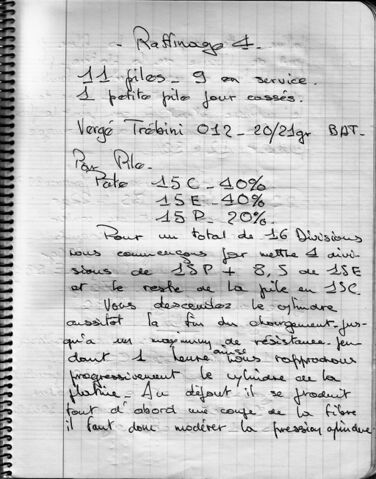 - Raffinage 1.
11 piles - 9 en service.
1 petite pile pour cassés.
Vergé Trébini 012 - 20/21gr BAT-
Par Pile.
Pate 15C - 40%
15E - 40%
15P - 20%.
Pour un total de 16 Divisions
nous commençons par mettre 1 divi-
sions de 15P + 8,5 de 15E
et le reste de la pile en 15C.
Vous descendez le cylindre
aussitot la fin du chargement jus-
qu'a un maximum de résistance pen-
dant 1 heure ainsi nous rapprochons
progressivement le cylindre de la
platine - Au départ il se produit
tout d'abord une coupe de la fibre
il faut donc modérer la pression cylindre